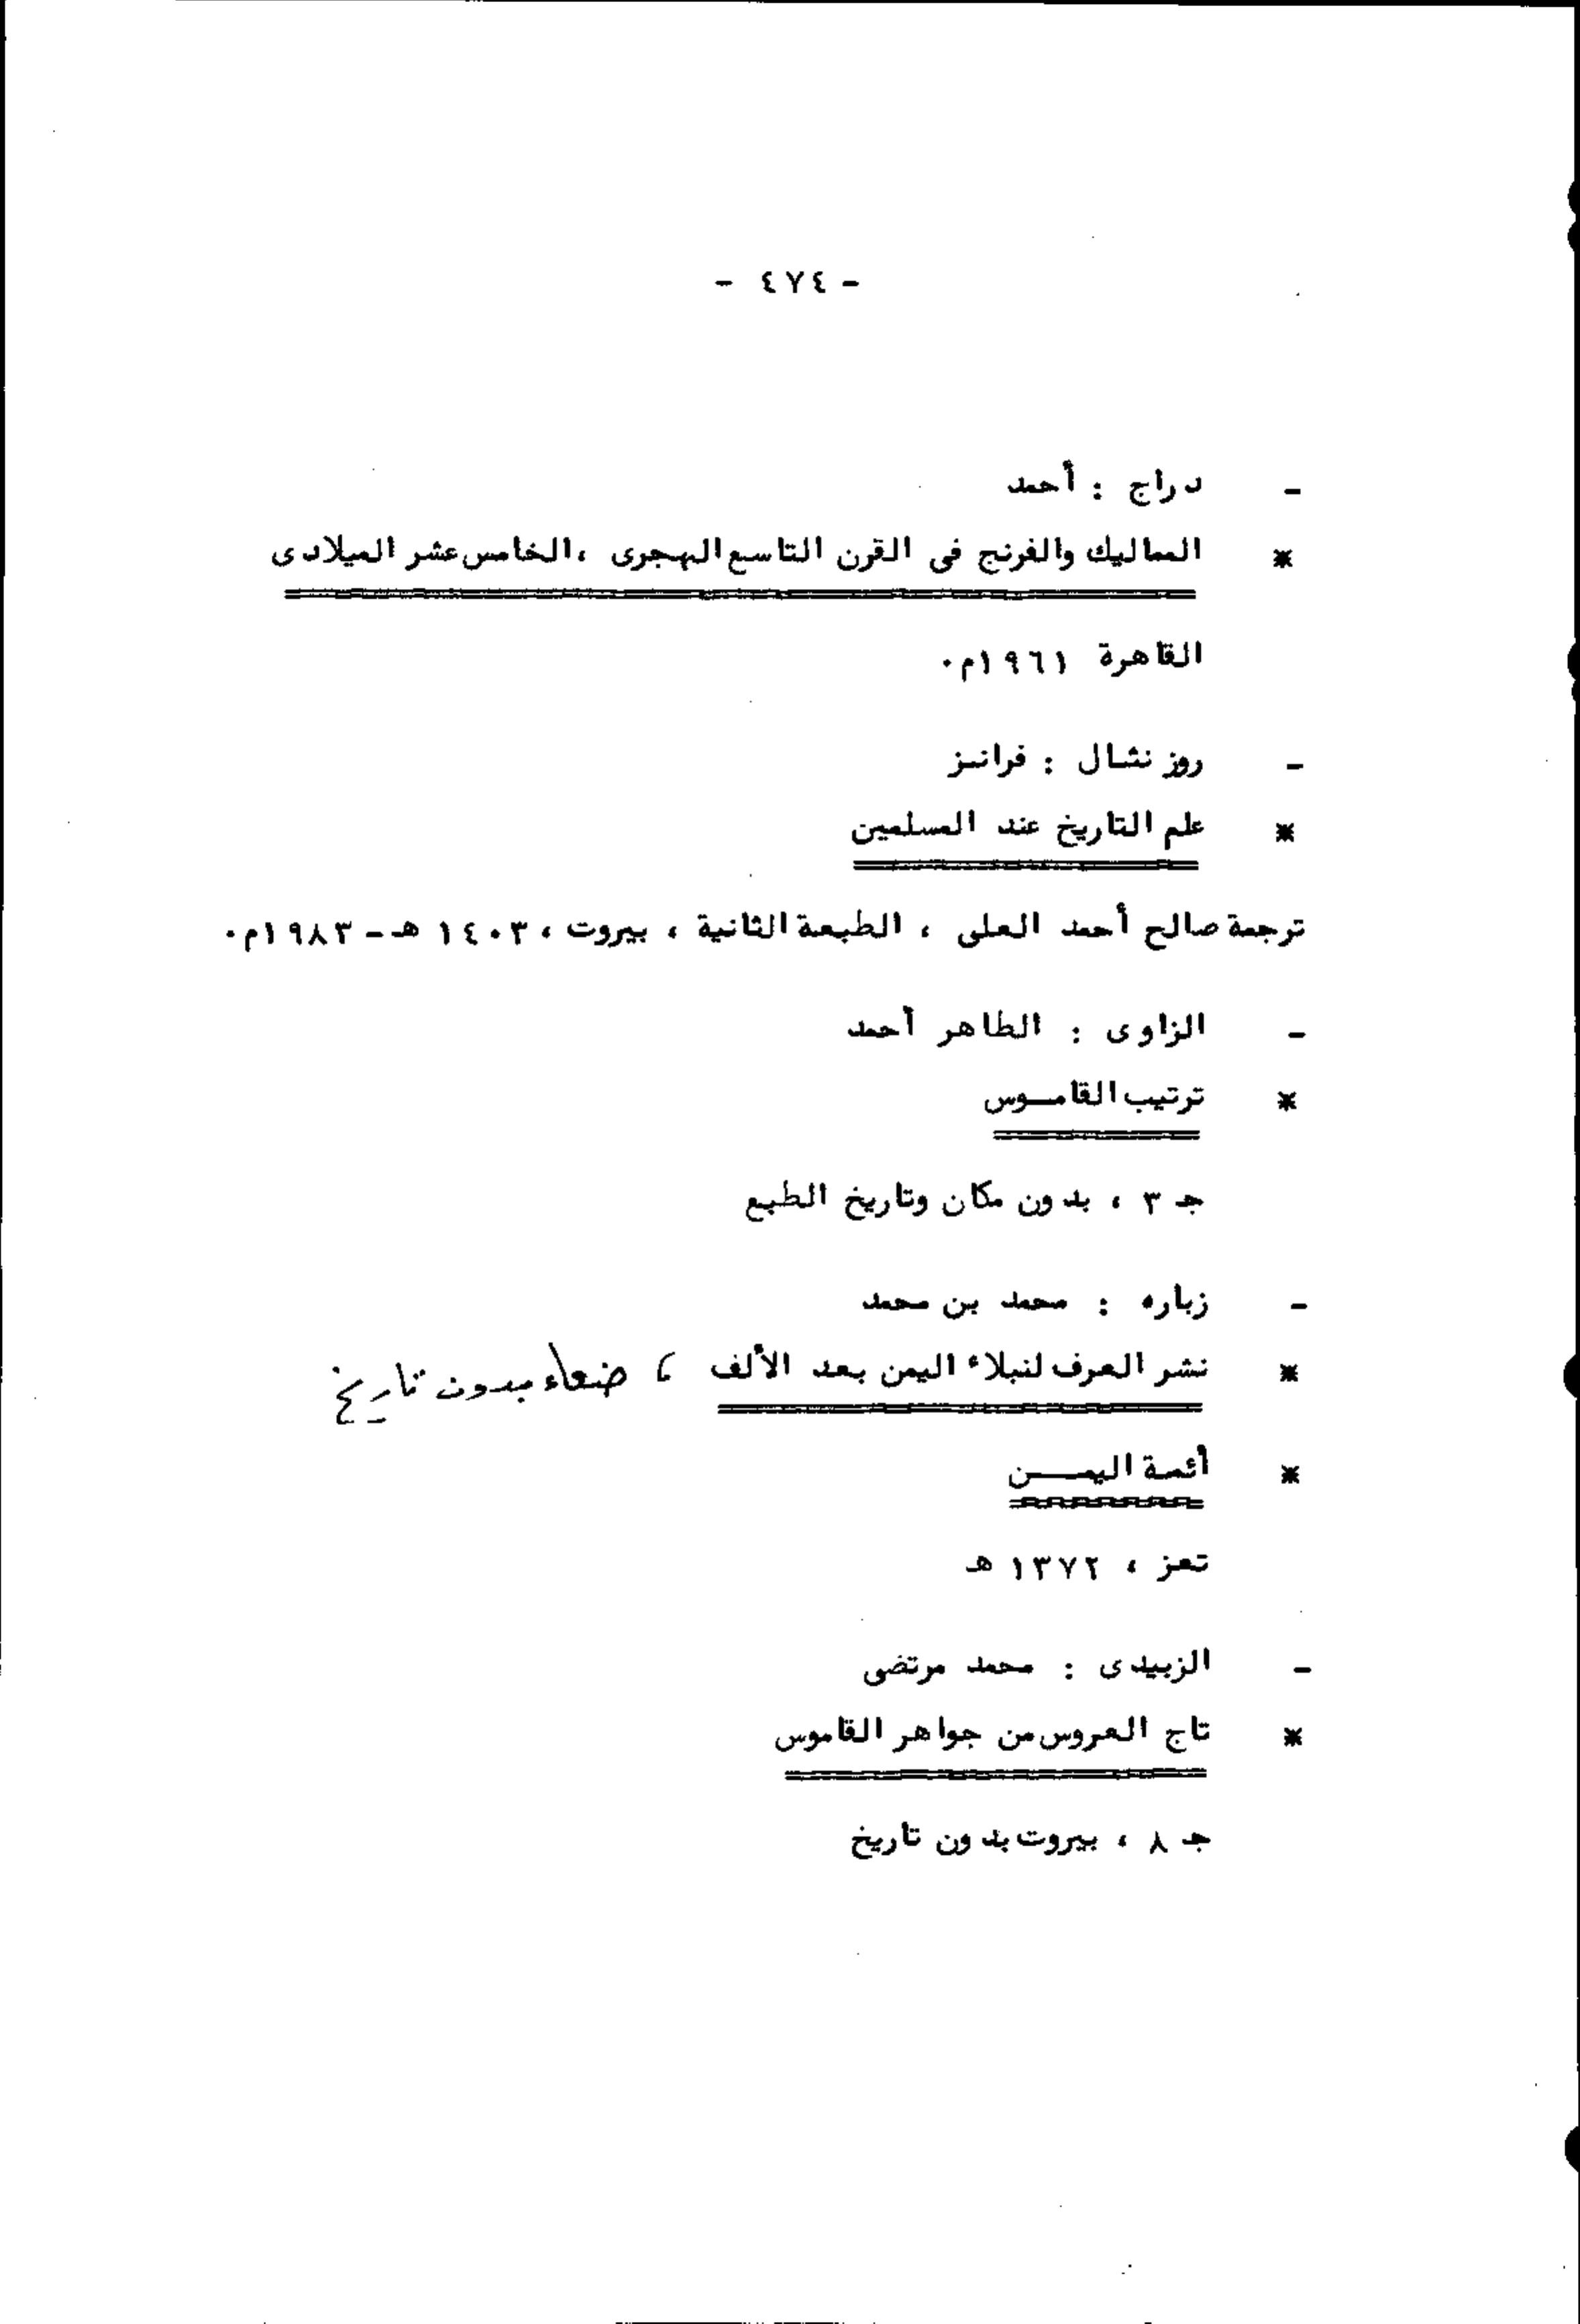 - ٤٧٤ -
- دراج : أحمد
* المماليك والفرنج فى القرن التاسع الهجرى ،الخامس عشر الميلادى
القاهرة ١٩٦١م.
- روزنشال : فرانز
* علم التاريخ عند المسلمين
ترجمة صالح أحمد العلى ، الطبعة الثانية ، بيروت ، ١٤٠٣ هـ - ١٩٨٣م.
- الزاوى : الطاهر أحمد
* ترتيب القامـوس
جـ ٣ ، بدون مكان وتاريخ الطبع
- زباره : محمد بن محمد
* نشر العرف لنبلاء اليمن بعد الألف ، صنعاء بدون تاريخ
* أئمة اليمـــن
تعز ، ١٣٧٢ هـ
- الزبيدى : محمد مرتضى
* تاج العروس من جواهر القاموس
جـ ٨ ، بيروت بدون تاريخ